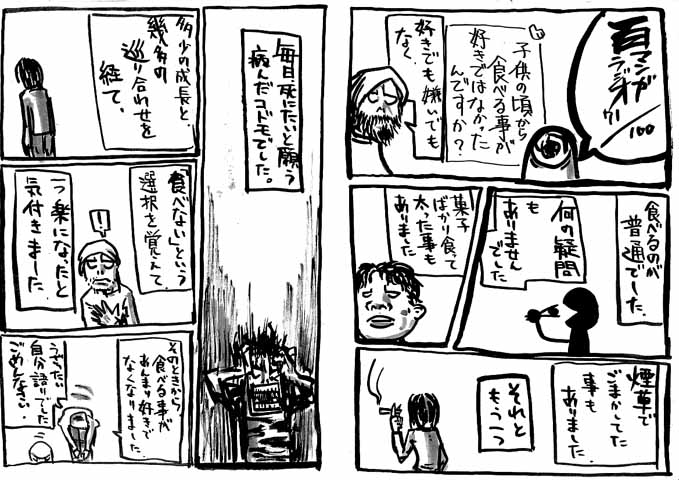 百マンガ
ラジオ
71/100
子供の頃から
食べる事が
好きではなかった
んですか？
好きでも嫌いでも
なく、
食べるのが
普通でした。
何の疑問
も
ありません
でした
菓子
ばかり食って
太った事も
ありました
煙草で
ごまかしてた
事も
ありました。
それと
もう一つ
毎日、死にたいと願う
病んだコドモでした。
多少の成長と、
幾多の
巡り合わせを
経て、
「食べない」という
選択を覚えて、
一つ楽になったと
気付きました。
そのときから
食べる事が
あんまり好きで
なくなりました。
うざったい
自分語りでした
ごめんなさい。